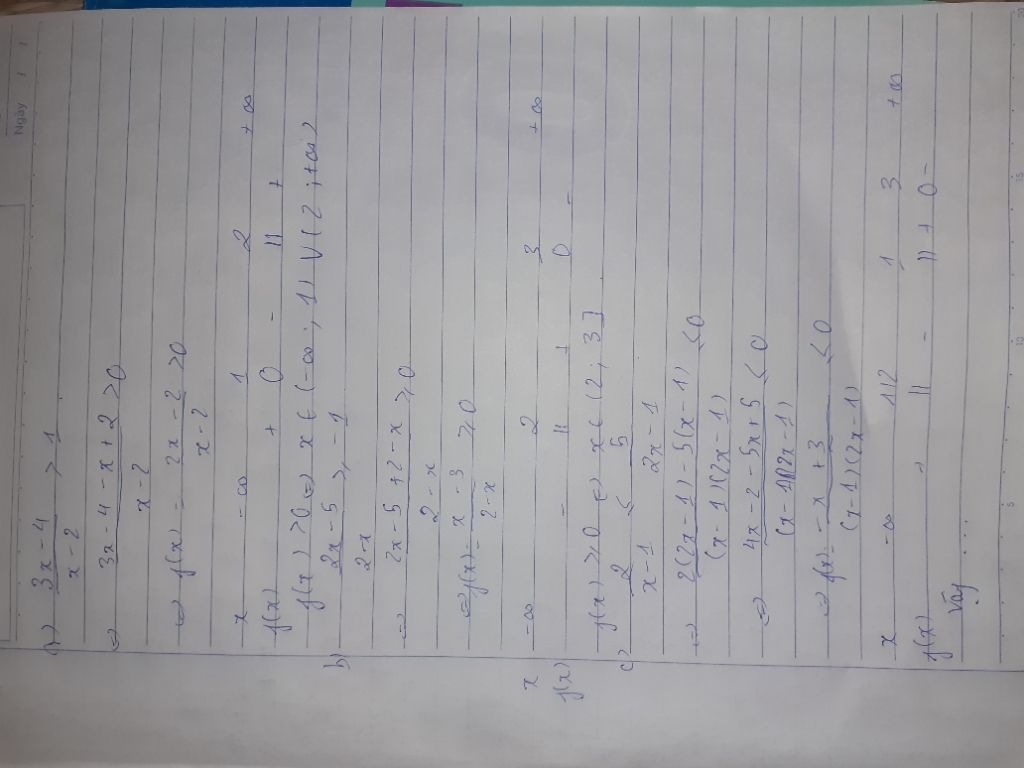 Ngày
a) 3x - 4 / x - 2 > 1
⇔ 3x - 4 - x + 2 / x - 2 > 0
⇔ f(x) = 2x - 2 / x - 2 > 0
x -∞ 1 2 +∞
f(x) + 0 - || +
f(x) > 0 ⇔ x ∈ (-∞; 1) ∪ (2; +∞)
b) 2x - 5 / 2 - x ≥ -1
⇔ 2x - 5 + 2 - x / 2 - x ≥ 0
⇔ f(x) = x - 3 / 2 - x ≥ 0
x -∞ 2 3 +∞
f(x) - || + 0 -
f(x) ≥ 0 ⇔ x ∈ (2; 3]
c) 2 / x - 1 ≤ 5 / 2x - 1
⇔ 2(2x - 1) - 5(x - 1) / (x - 1)(2x - 1) ≤ 0
⇔ 4x - 2 - 5x + 5 / (x - 1)(2x - 1) ≤ 0
⇔ f(x) = - x + 3 / (x - 1)(2x - 1) ≤ 0
x -∞ 1/2 1 3 +∞
f(x) + || - || + 0 -
Vậy ...